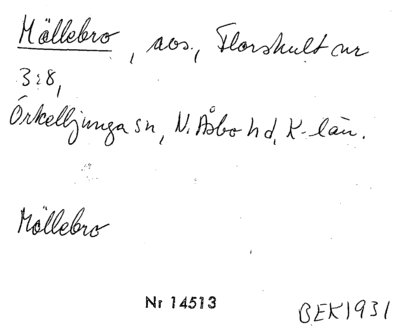 Möllebro, aos., Florshult nr
3:8,
Örkelljunga sn, N. Åsbo hd, K-län.
Möllebro
Nr 14513
BEK 1931